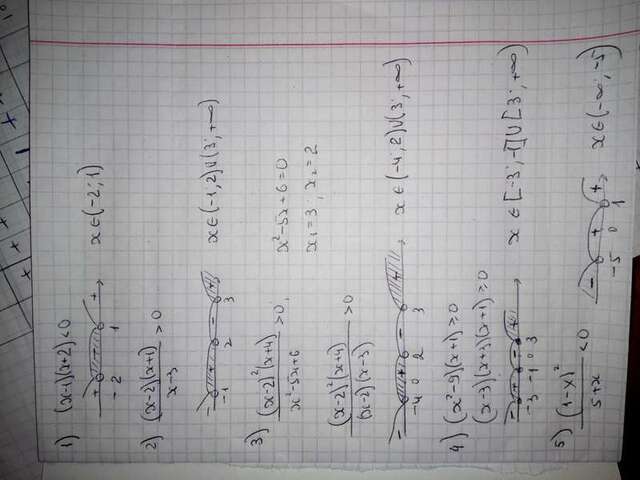 1) (x-1)(x+2)<0
+ - +
-2 1
x∈(-2; 1)
2) (x-2)(x+1)
x-3
>0
- + - +
-1 2 3
x∈(-1; 2)∪(3; +∞)
3) (x-2)²(x+4)
x²-5x+6
>0;
x²-5x+6=0
x₁=3; x₂=2
(x-2)²(x+4)
(x-2)(x-3)
>0
- + - +
-4 0 2 3
x∈(-4; 2)∪(3; +∞)
4) (x²-9)(x+1)≥0
(x-3)(x+3)(x+1)≥0
- + - +
-3 -1 0 3
x∈[-3; -1]∪[3; +∞)
5) (1-x)²
5+x
<0
- + +
-5 0 1
x∈(-∞; -5)